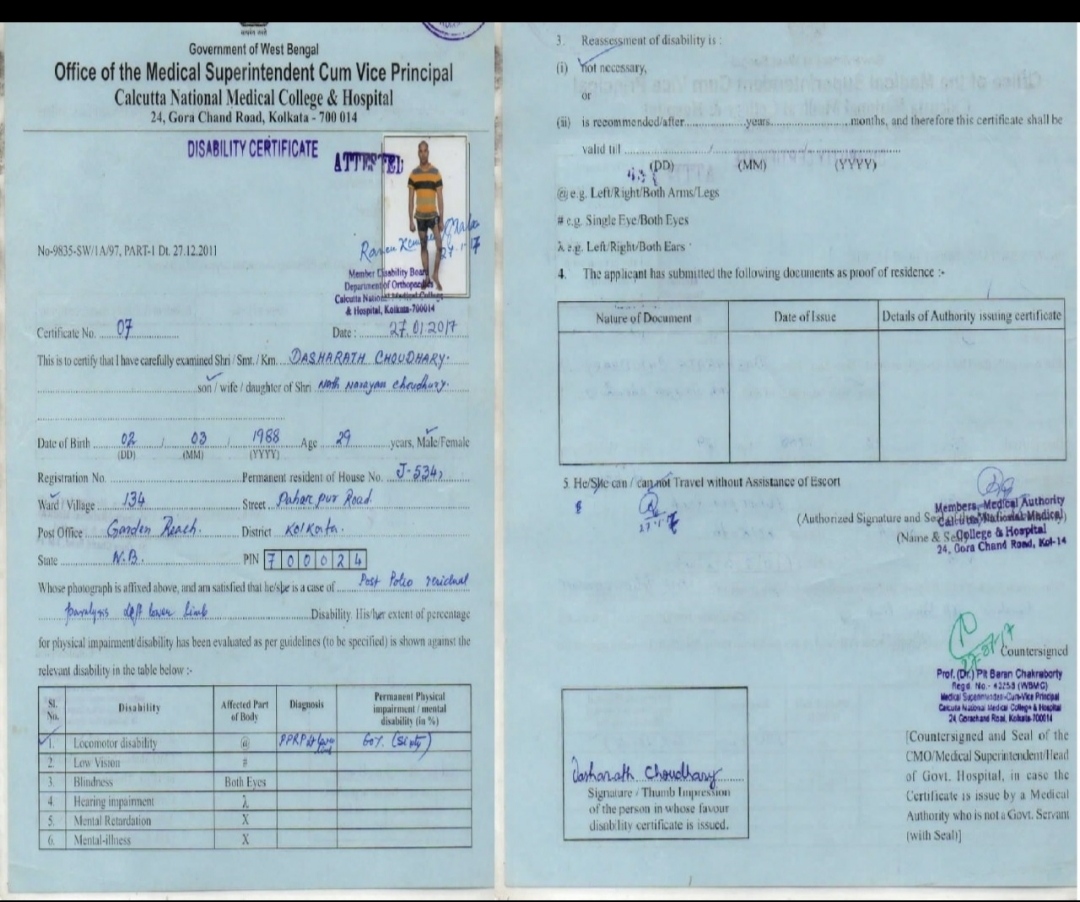 सत्यमेव जयते
Government of West Bengal
Office of the Medical Superintendent Cum Vice Principal
Calcutta National Medical College & Hospital
24, Gora Chand Road, Kolkata - 700 014
DISABILITY CERTIFICATE
ATTESTED
No-9835-SW/1A/97, PART-1 Dt. 27.12.2011
27.1.17
Member Disability Board
Department of Orthopaedics
Calcutta National Medical College
& Hospital, Kolkata-700014
Certificate No. 07
Date : 27.01.2017
This is to certify that I have carefully examined Shri / Smt. / Km. DASHARATH CHOUDHARY.
son / wife / daughter of Shri Nath Narayan Choudhury.
Date of Birth 02 / 03 / 1988 Age 29 years, Male/Female
(DD) (MM) (YYYY)
Registration No. Permanent resident of House No. J-534,
Ward / Village 134 Street Paharpur Road
Post Office Garden Reach. District Kolkata.
State W.B. PIN 700024
Whose photograph is affixed above, and am satisfied that he/she is a case of Post Polio residual
paralysis left lower limb Disability His/her extent of percentage
for physical impairment/disability has been evaluated as per guidelines (to be specified) is shown against the
relevant disability in the table below :-
Sl. No. Disability Affected Part of Body Diagnosis Permanent Physical impairment / mental disability (in %)
1. Locomotor disability @ PPRP 60%. (Sixty)
2. Low Vision #
3. Blindness Both Eyes
4. Hearing impairment λ
5. Mental Retardation X
6. Mental-illness X
3. Reassessment of disability is :
(i) not necessary,
or
(ii) is recommended/after years months, and therefore this certificate shall be
valid till /
(DD) (MM) (YYYY)
@ e.g. Left/Right/Both Arms/Legs
# e.g. Single Eye/Both Eyes
λ e.g. Left/Right/Both Ears
4. The applicant has submitted the following documents as proof of residence :-
Nature of Document Date of Issue Details of Authority issuing certificate
5. He/She can / can not Travel without Assistance of Escort
27.1.17
(Authorized Signature and
(Name &
Members, Medical Authority
Calcutta National Medical
College & Hospital
24, Gora Chand Road, Kol-14
Countersigned
Prof. (Dr.) Pit Baran Chakraborty
Regd. No.- 43253 (WBMC)
Medical Superintendent-Cum-Vice Principal
Calcutta National Medical College & Hospital
24, Gorachand Road, Kolkata-700014
[Countersigned and Seal of the
CMO/Medical Superintendent/Head
of Govt. Hospital, in case the
Certificate is issue by a Medical
Authority who is not a Govt. Servant
(with Seal)]
Dasharath Choudhary
Signature / Thumb Impression
of the person in whose favour
disability certificate is issued.